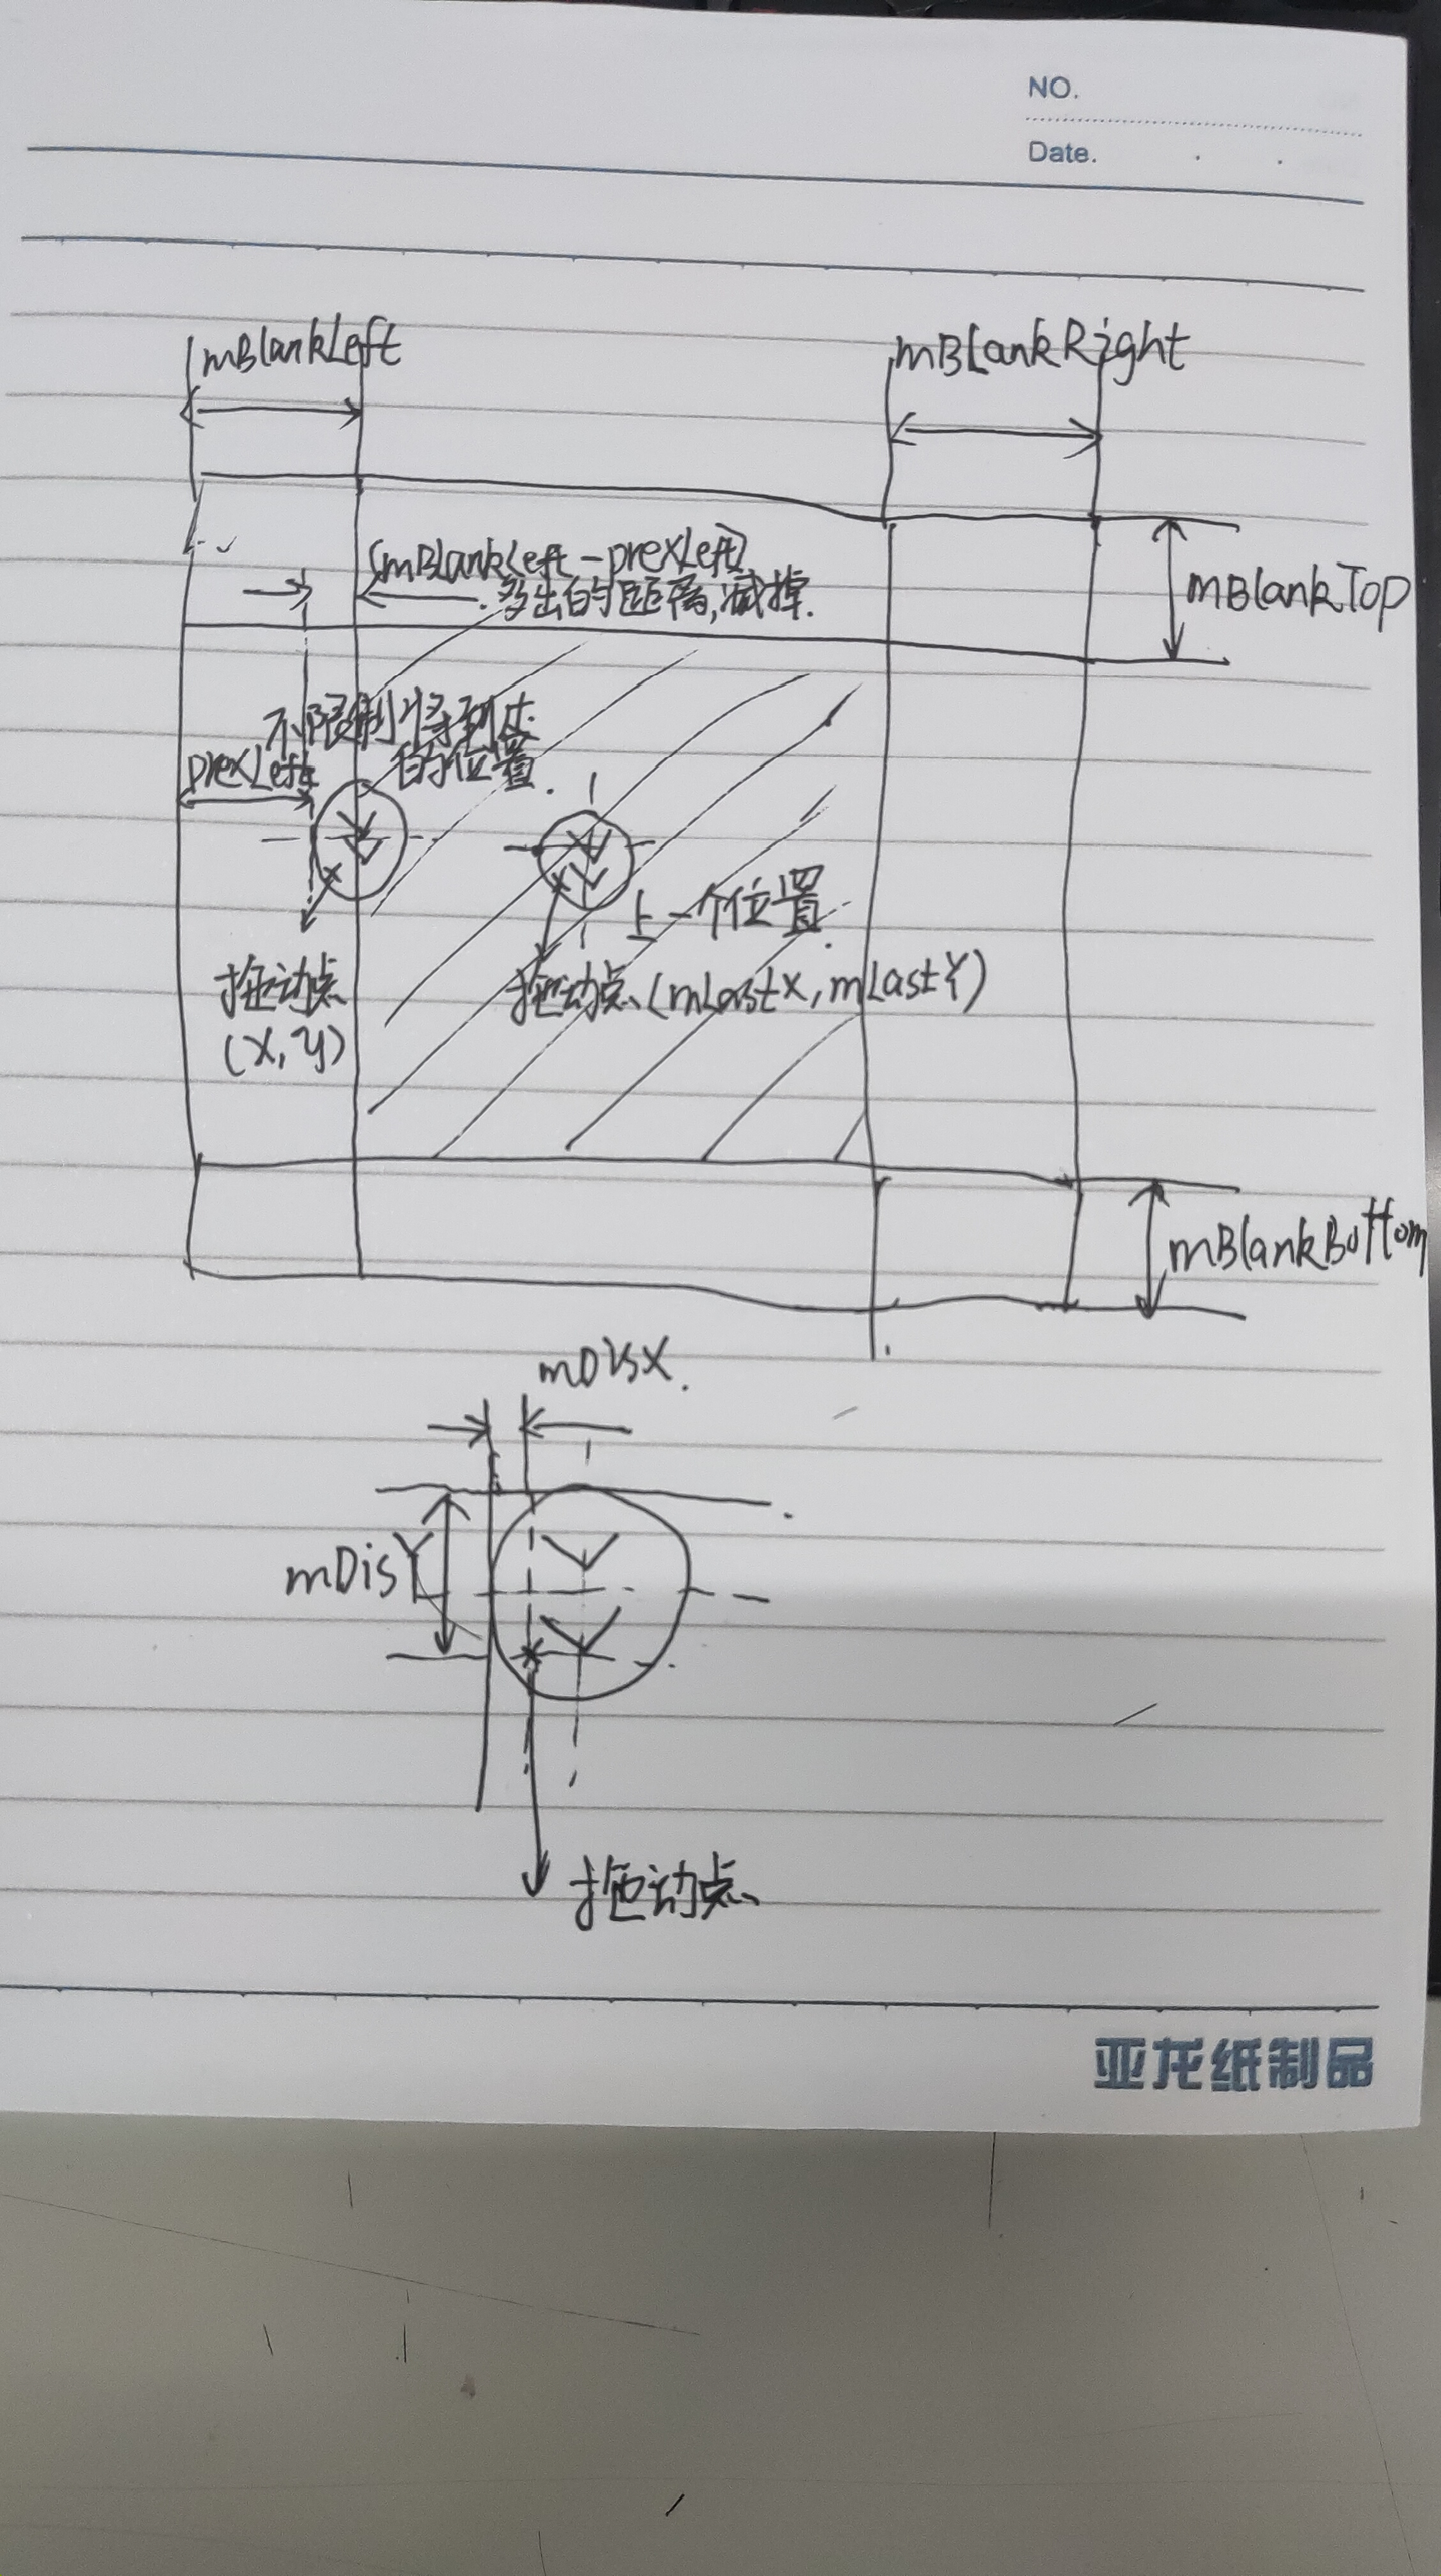 NO.
Date.
mBlankLeft
mBlankRight
(mBlankLeft-prexLeft)
多出的距离,减掉.
mBlankTop
不限制将到达
的位置.
prexLeft
上一个位置.
拖动点(mLastX,mLastY)
拖动点
(x,y)
mBlankBottom
mDisX.
mDisY
拖动点
亚龙纸制品